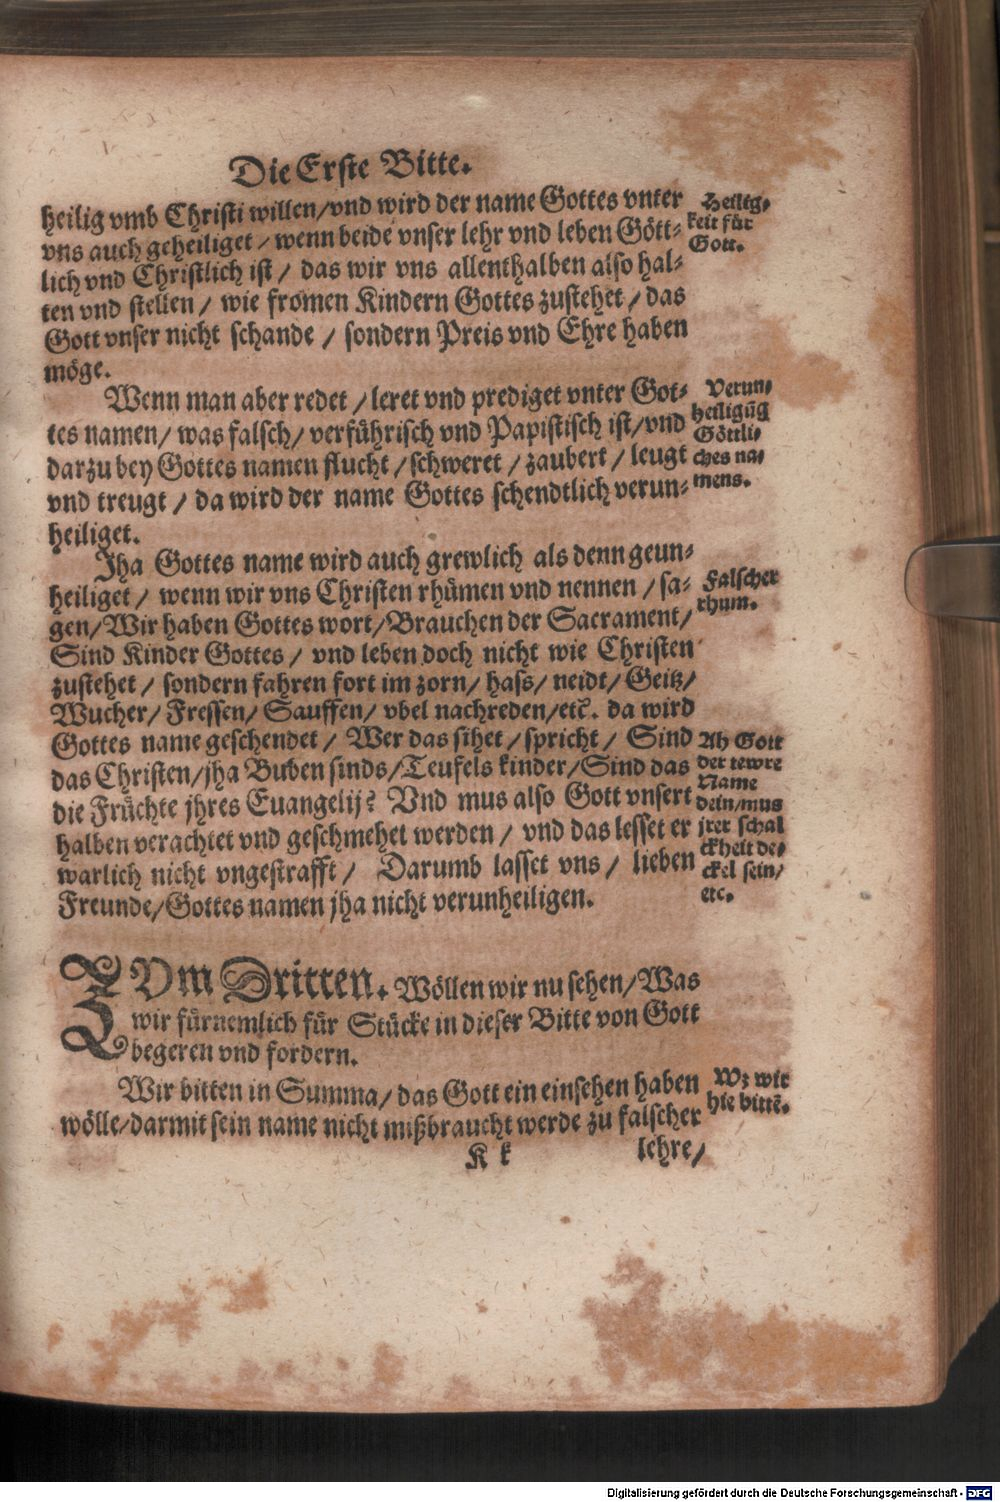 Die Erste Bitte.
heilig vmb Christi willen/vnd wird der name Gottes vnter
vns auch geheiliget/wenn beide vnser lehr vnd leben Gött⸗
lich vnd Christlich ist/ das wir vns allenthalben also hal⸗
ten vnd stellen/ wie fromen Kindern Gottes zustehet/das
Gott vnser nicht schande/ sondern Preis vnd Ehre haben
möge.
Heilig⸗
keit für
Gott.
Wenn man aber redet/leret vnd prediget vnter Got⸗
tes namen/was falsch/verführisch vnd Papistisch ist/vnd
darzu bey Gottes namen flucht/schweret/zaubert/leugt
vnd treugt/da wird der name Gottes schendtlich verun⸗
heiliget.
Verun⸗
heiligūg
Göttli⸗
ches na⸗
mens.
Jha Gottes name wird auch grewlich als denn geun⸗
heiliget/ wenn wir vns Christen rhümen vnd nennen/sa⸗
gen/Wir haben Gottes wort/Brauchen der Sacrament/
Sind Kinder Gottes/ vnd leben doch nicht wie Christen
zustehet/ sondern fahren fort im zorn/hass/neidt/Geitz/
Wucher/Fressen/Sauffen/vbel nachreden/etc. da wird
Gottes name geschendet/ Wer das sihet/spricht/ Sind
das Christen/jha Buben sinds/Teufels kinder/Sind das
die Früchte jhres Euangelij? Vnd mus also Gott vnsert
halben verachtet vnd geschmehet werden/ vnd das lesset er
warlich nicht vngestrafft/ Darumb lasset vns/ lieben
Freunde/Gottes namen jha nicht verunheiligen.
Falscher
rhum.
Ah Gott
der tewre
Name
dein/mus
jrer schal
ckheit de⸗
ckel sein/
etc.
ZVm Dritten. Wöllen wir nu sehen/Was
wir fürnemlich für Stücke in dieser Bitte von Gott
begeren vnd fordern.
Wir bitten in Summa/das Gott ein einsehen haben
wölle/darmit sein name nicht mißbraucht werde zu falscher
Wz wir
hie bittē.
K k
lehre/
Digitalisierung gefördert durch die Deutsche Forschungsgemeinschaft - DFG